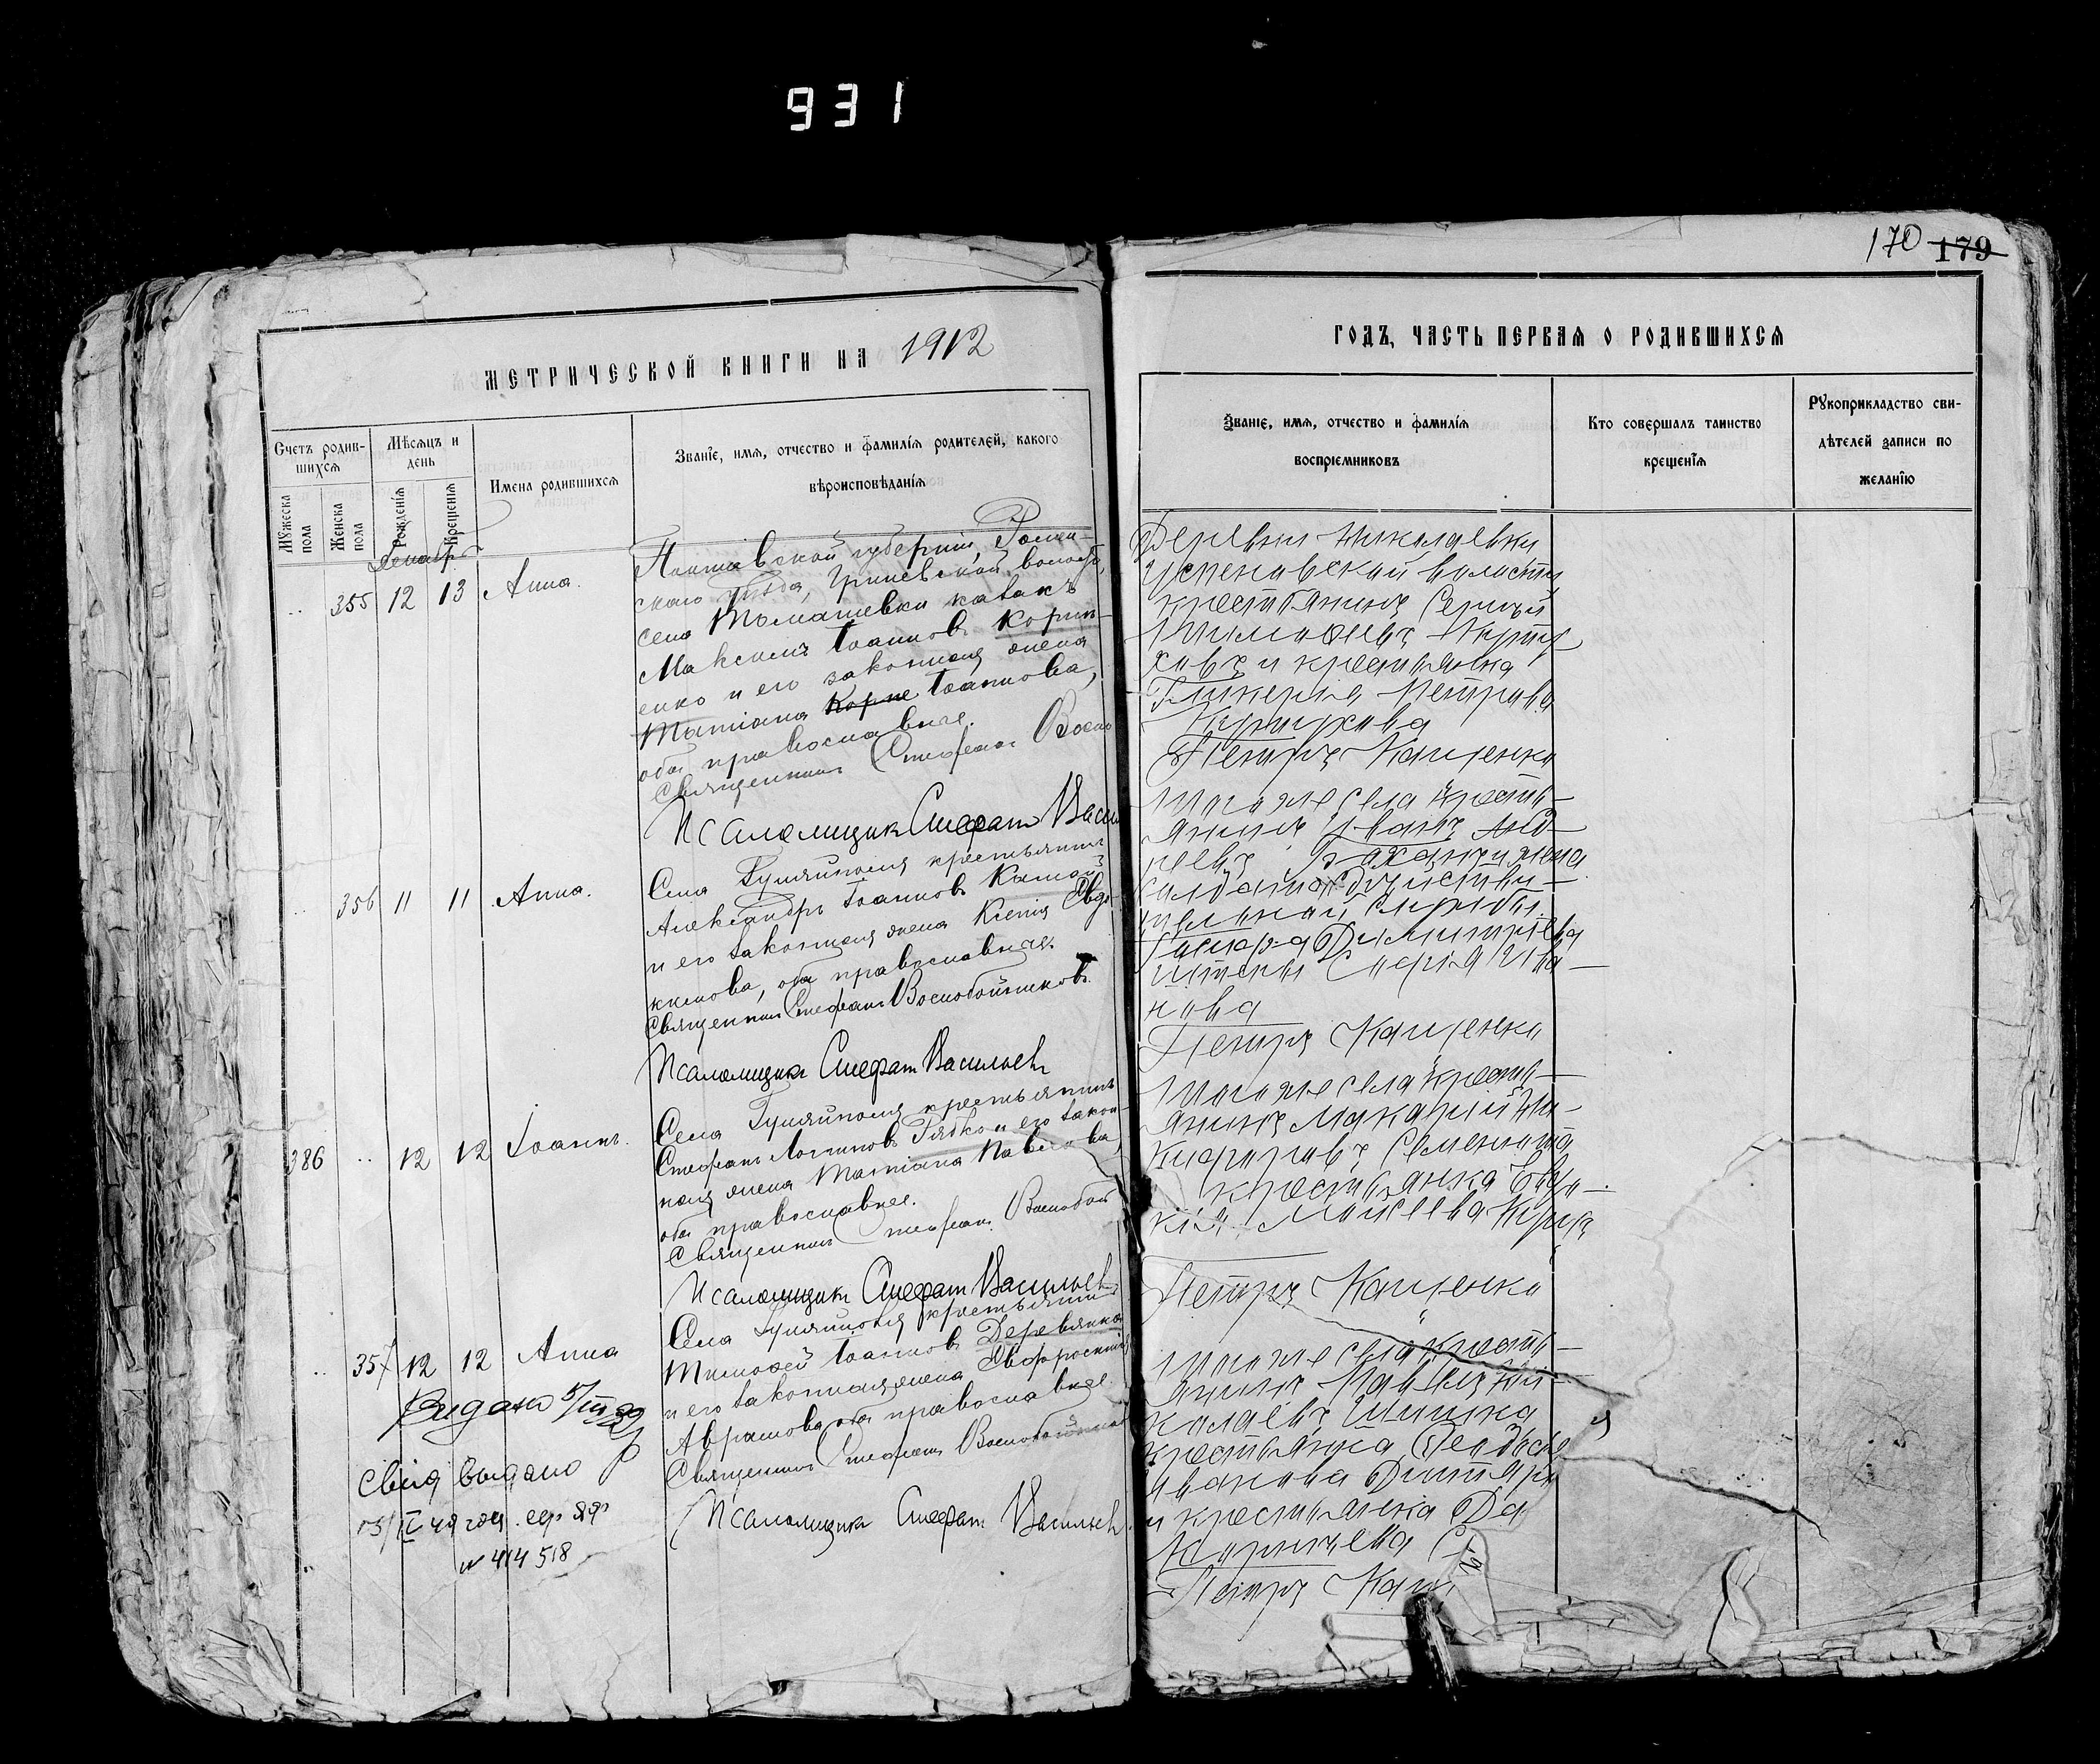 931
170 179
МЕТРИЧЕСКОЙ КНИГИ НА 1912
ГОДЪ, ЧАСТЬ ПЕРВАЯ О РОДИВШИХСЯ
Счетъ родив-
шихся
Мужеска пола
Женска пола
Мѣсяцъ и
день
Рожденія
Крещенія
Имена родившихся
Званіе, имя, отчество и фамилія родителей, какого
вѣроисповѣданія
Званіе, имя, отчество и фамилія
воспріемниковъ
Кто совершалъ таинство
крещенія
Рукоприкладство сви-
дѣтелей записи по
желанію
Декабрь
355 12 13 Анна.
Полтавской губерніи, Ромен-
скаго уѣзда, Гриневской волости,
села Томашевки казакъ
Максимъ Іоанновъ Корни-
енко и его законная жена
Татіана Корне Іоаннова,
оба православные.
Священникъ Стефанъ
Псаломщикъ Стефанъ Васил
Деревни Николаевки
Успеновской волости
крестьянинъ Сергѣй
Тимофеевъ
и крестьянка
Гликерія Петрова
Петръ Кащенко
356 11 11 Анна.
Села Гуляйполя крестьянинъ
Александръ Іоанновъ
и его законная жена Ксенія Евдо
кимова, оба православные.
Священникъ Стефанъ Воскобойниковъ.
Псаломщикъ Стефанъ Васильевъ
Того же села кресть-
янинъ Иванъ Анд-
реевъ и жена
солдата дѣйстви-
тельной службы
Димитріева
Софія Ива-
нова
Петръ Кащенко
386 12 12 Іоаннъ.
Села Гуляйполя крестьянинъ
Стефанъ Логиновъ Рябко и его закон-
ная жена Татіана Павлова,
оба православные.
Священникъ Стефанъ Воскобой
Псаломщикъ Стефанъ Васильевъ
Того же села кресть-
янинъ Макарій Ни-
кифоровъ Семенюта
крестьянка Евдо-
кія Моисеева
Петръ Кащенко
357 12 12 Анна
Села Гуляйполя крестьянинъ
Тимофей Іоанновъ Деревянко
и его законная жена Евфросинія
Аврамова, оба православные.
Священникъ Стефанъ Воскобойников
Псаломщикъ Стефанъ Васильевъ.
Того же села кресть-
янинъ Павелъ Ни-
колаевъ Шишка
крестьянка
Иванова
и крестьянка
Петръ Кащ
Видано
выдано
№ 414518